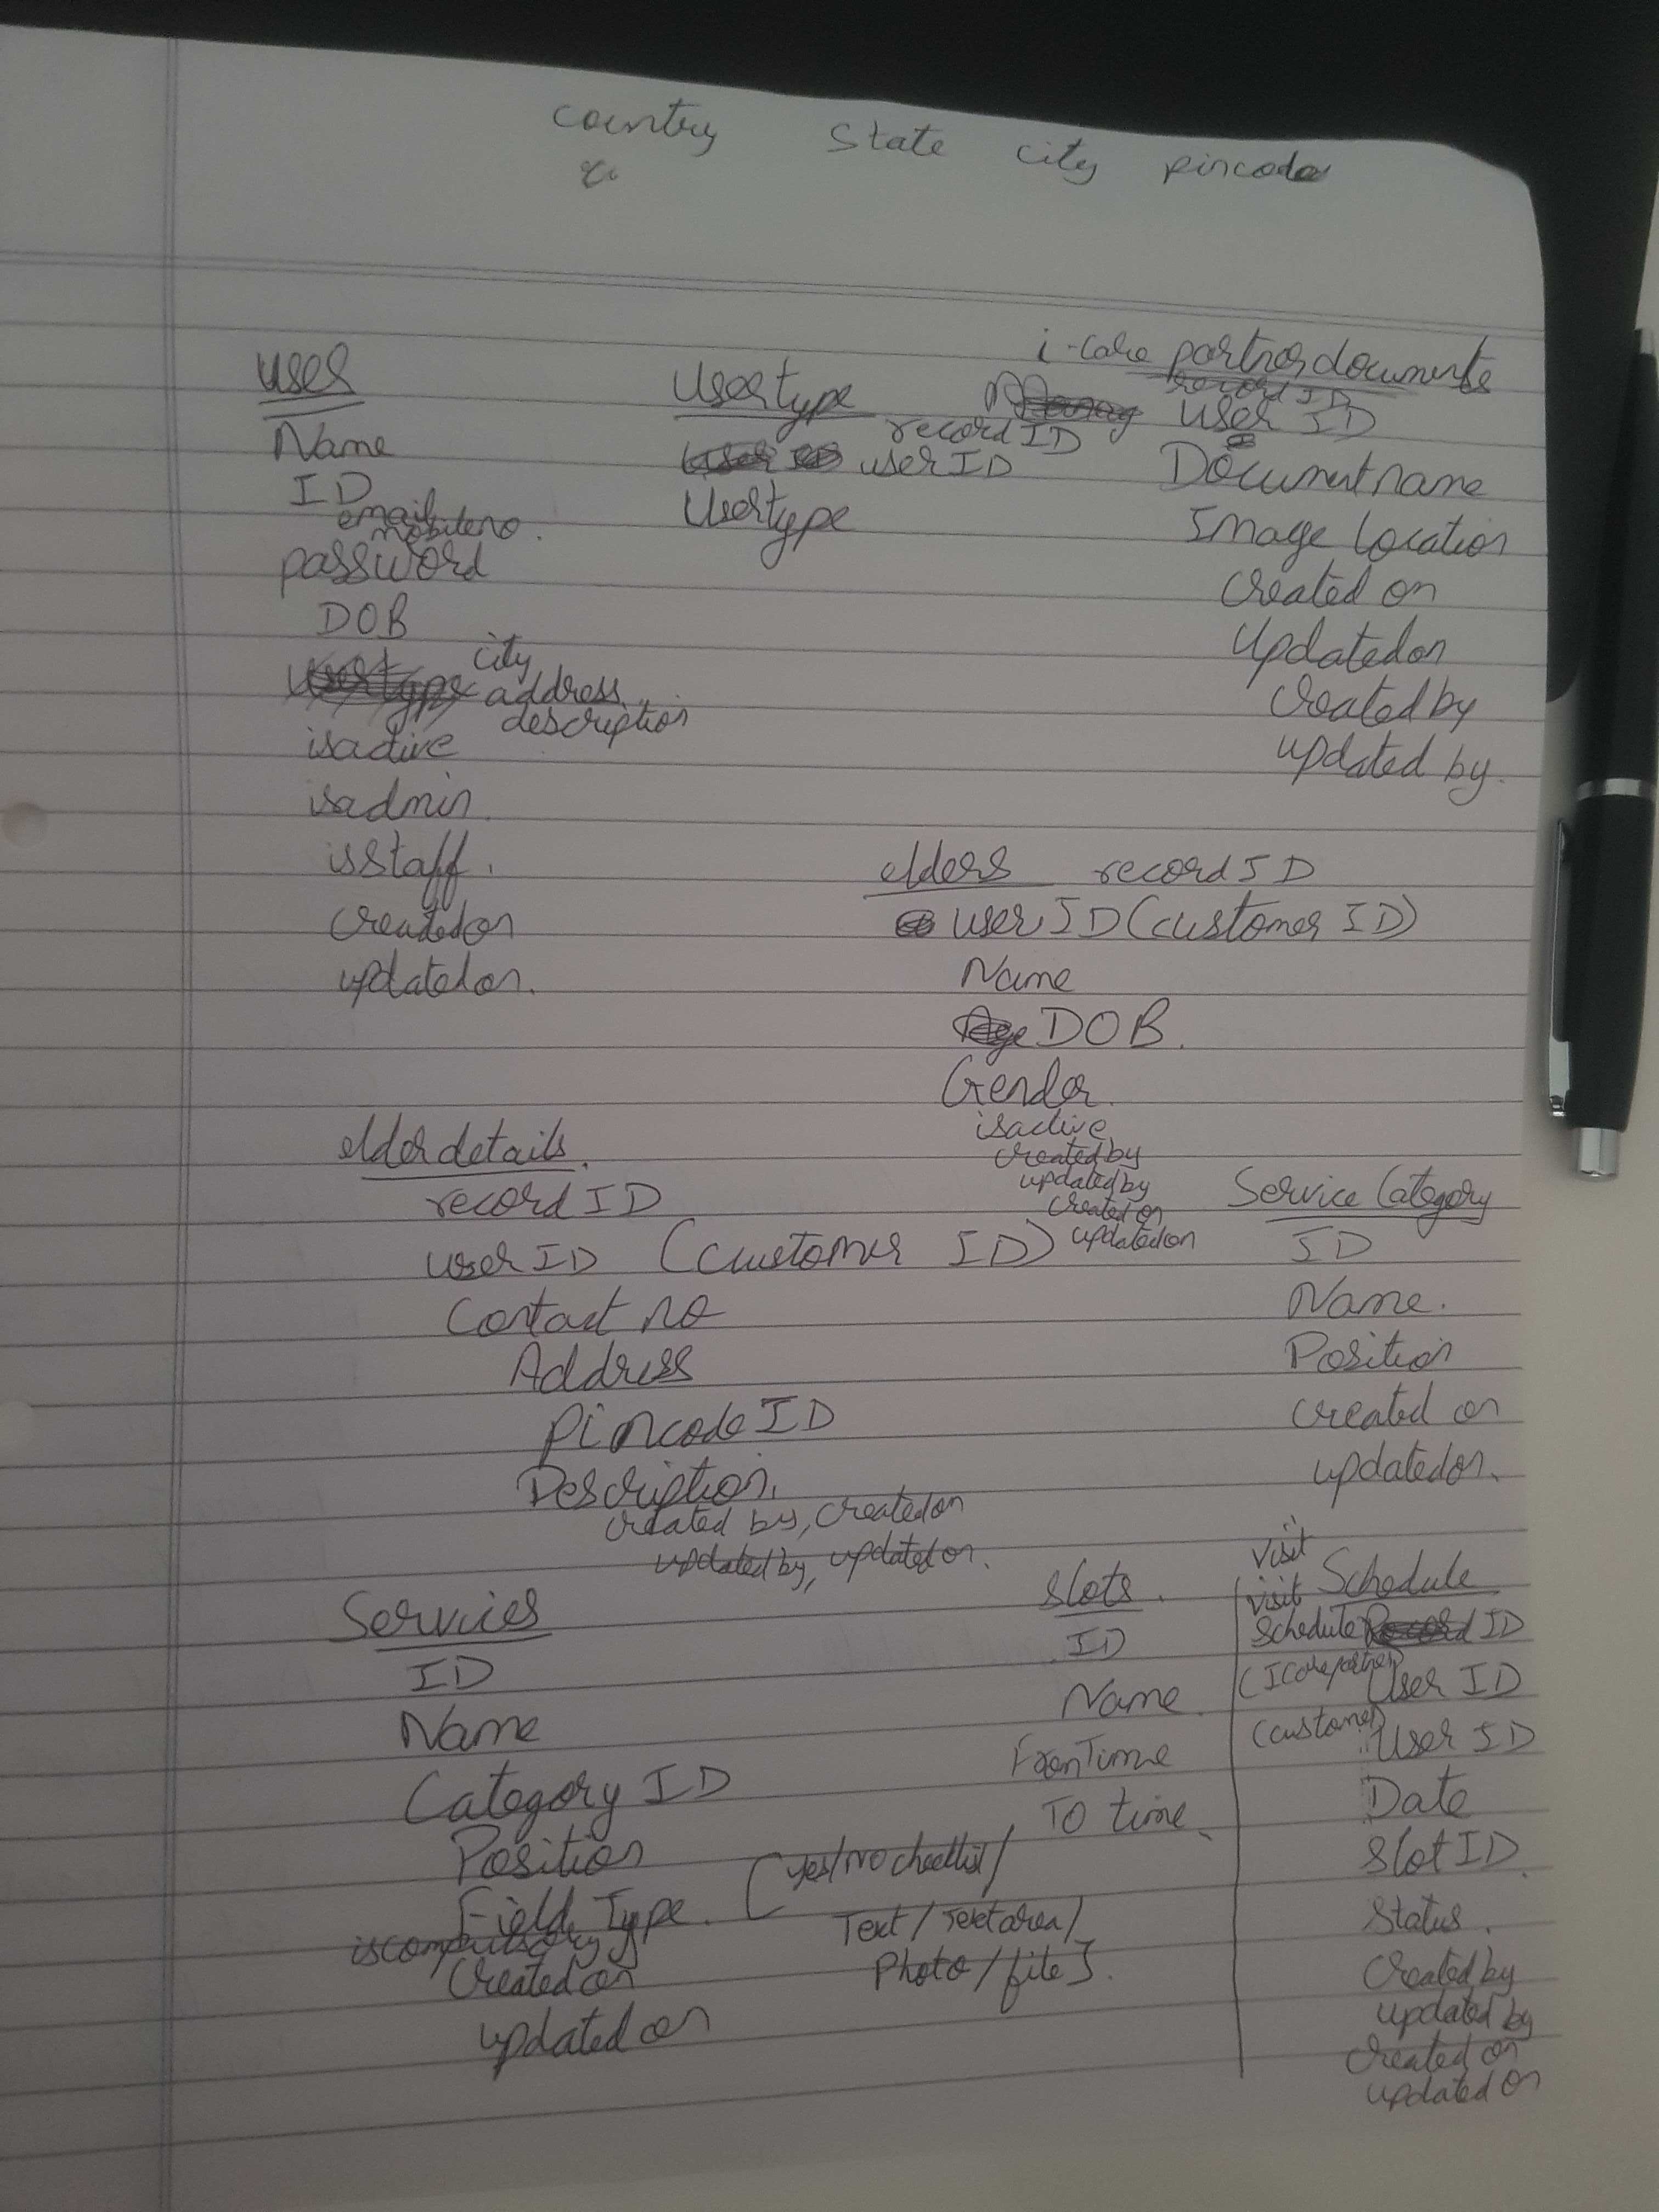 country state city pincode
user
Name
ID
email
mobileno.
password
DOB
city
address
description
isactive
isadmin
isstaff.
createdon
updatedon.
Usertype
recordID
userID
Usertype
i-care partner documents
record ID
user ID
Document name
Image location
created on
updatedon
created by
updated by.
elders recordID
userID (customer ID)
Name
DOB.
Gender
isactive
created by
updated by
created on
updatedon
elder details.
record ID
user ID (customer ID)
Contact no
Address
pincode ID
Description.
created by, createdon
updated by, updated on.
Service Category
ID
Name.
Position
created on
updatedon.
Services
ID
Name
Category ID
Position
Field Type. [yes/no checklist/
Text / Textarea/
Photo / file].
iscompulsory
created on
updated on
slots.
ID
Name
From Time
To time.
visit
visit Schedule
schedule ID
(Icarepartner) User ID
(customer) User ID
Date
Slot ID.
Status.
created by
updated by
created on
updated on